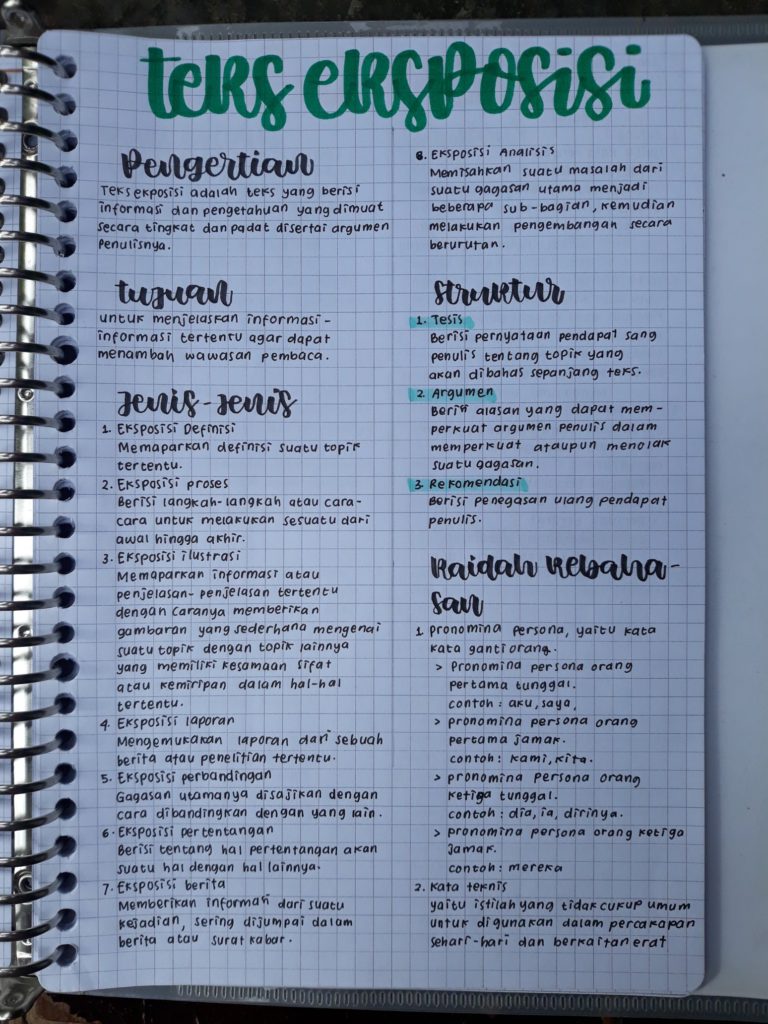 teks eksposisi
Pengertian
Teks ekposisi adalah teks yang berisi
informasi dan pengetahuan yang dimuat
secara tingkat dan padat disertai argumen
penulisnya.
tujuan
untuk menjelaskan informasi-
informasi tertentu agar dapat
menambah wawasan pembaca.
Jenis-Jenis
1. Eksposisi Definisi
Memaparkan definisi suatu topik
tertentu.
2. Eksposisi proses
Berisi langkah-langkah atau cara-
cara untuk melakukan sesuatu dari
awal hingga akhir.
3. Eksposisi ilustrasi
Memaparkan informasi atau
penjelasan-penjelasan tertentu
dengan caranya memberikan
gambaran yang sederhana mengenai
suatu topik dengan topik lainnya
yang memiliki kesamaan sifat
atau kemiripan dalam hal-hal
tertentu.
4. Eksposisi laporan
Mengemukakan laporan dari sebuah
berita atau penelitian tertentu.
5. Eksposisi perbandingan
Gagasan utamanya disajikan dengan
cara dibandingkan dengan yang lain.
6. Eksposisi pertentangan
Berisi tentang hal pertentangan akan
suatu hal dengan hal lainnya.
7. Eksposisi berita
Memberikan informasi dari suatu
kejadian, sering dijumpai dalam
berita atau surat kabar.
8. Eksposisi Analisis
Memisahkan suatu masalah dari
suatu gagasan utama menjadi
beberapa sub-bagian, kemudian
melakukan pengembangan secara
berurutan.
Struktur
1. Tesis
Berisi pernyataan pendapat sang
penulis tentang topik yang
akan dibahas sepanjang teks.
2. Argumen
Berisi alasan yang dapat mem-
perkuat argumen penulis dalam
memperkuat ataupun menolak
suatu gagasan.
3. Rekomendasi
Berisi penegasan ulang pendapat
penulis.
Kaidah Kebaha-
san
1 pronomina persona, yaitu kata
kata ganti orang.
> Pronomina persona orang
pertama tunggal.
contoh : aku, saya,
> pronomina persona orang
pertama jamak.
contoh : kami, kita.
> pronomina persona orang
ketiga tunggal.
contoh : dia, ia, dirinya.
> pronomina persona orang ketiga
jamak.
contoh: mereka
2. Kata teknis
yaitu istilah yang tidak cukup umum
untuk digunakan dalam percakapan
sehari-hari dan berkaitan erat